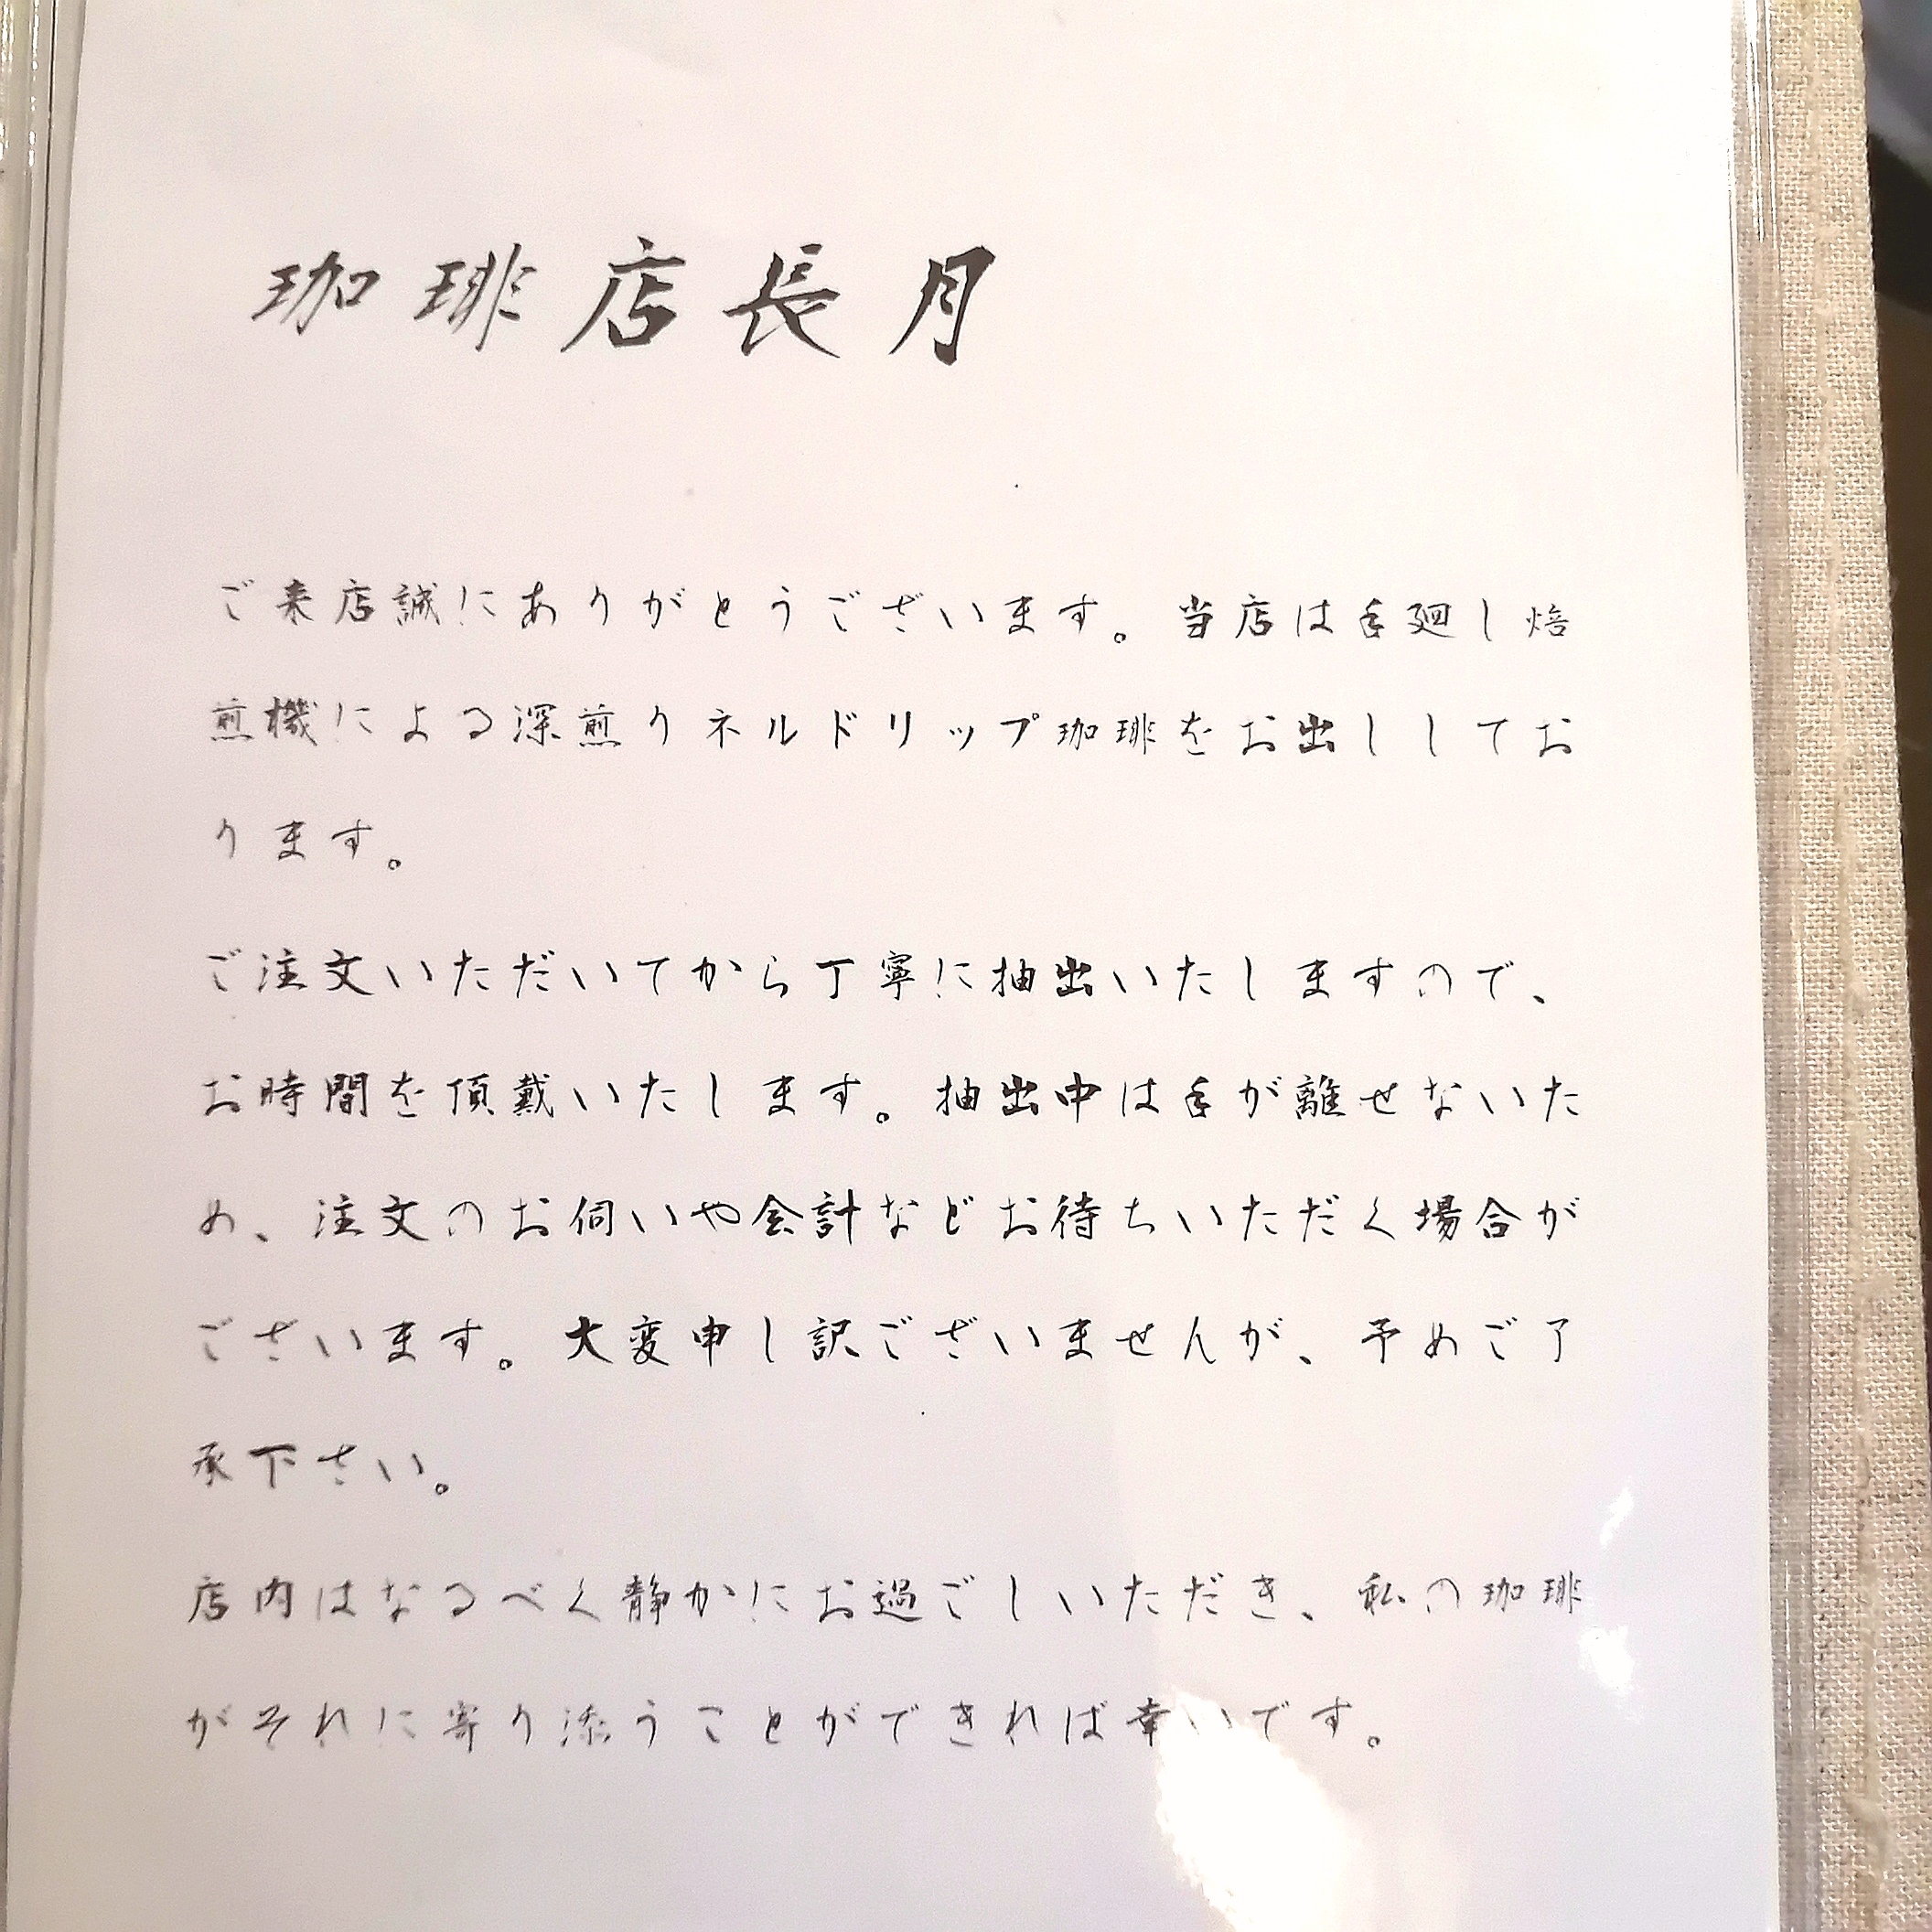 珈琲店長月
ご来店誠にありがとうございます。当店は手廻し焙
煎機による深煎りネルドリップ珈琲をお出ししてお
ります。
ご注文いただいてから丁寧に抽出いたしますので、
お時間を頂戴いたします。抽出中は手が離せないた
め、注文のお伺いや会計などお待ちいただく場合が
ございます。大変申し訳ございませんが、予めご了
承下さい。
店内はなるべく静かにお過ごしいただき、私の珈琲
がそれに寄り添うことができれば幸いです。